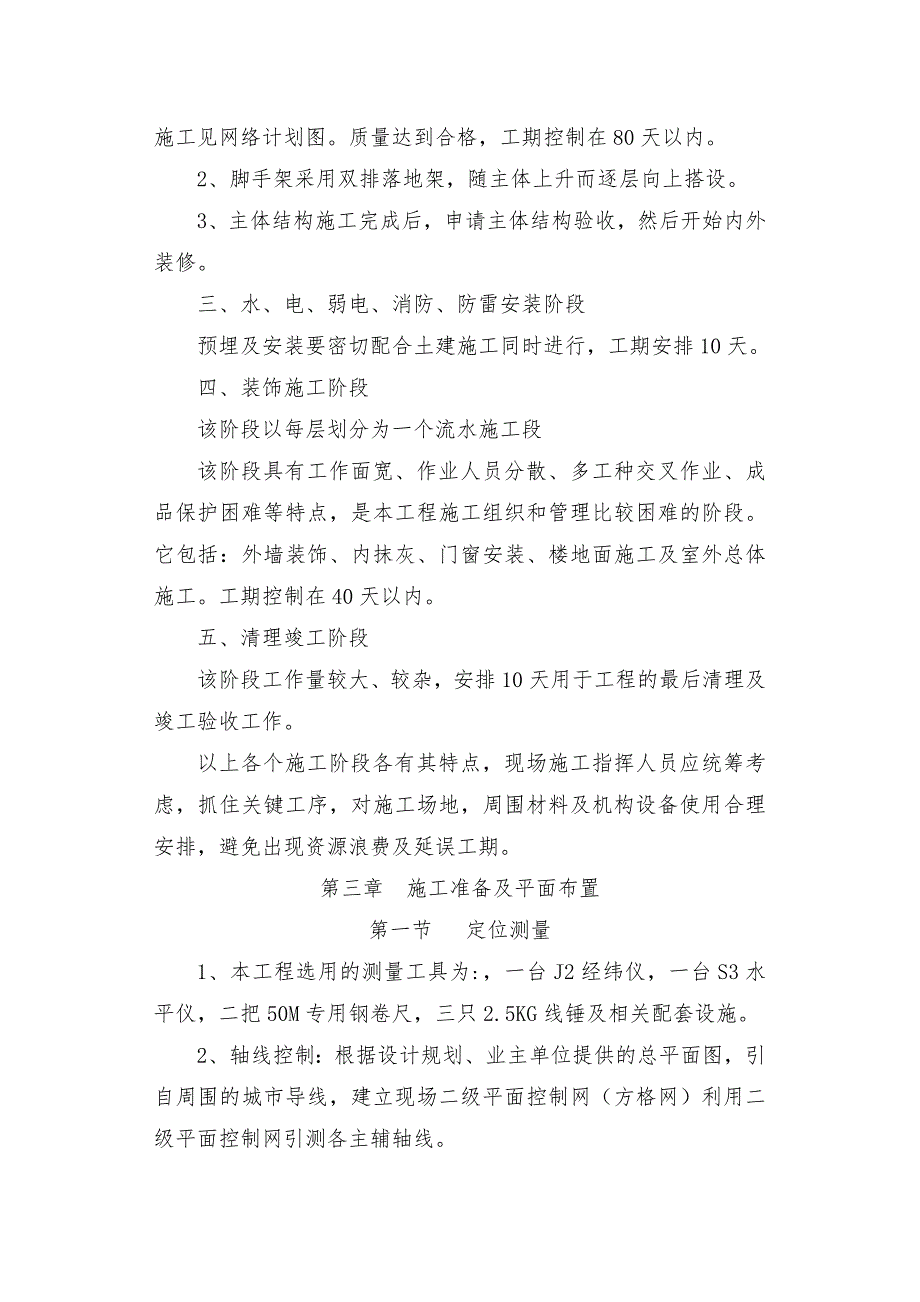 施工见网络计划图。质量达到合格，工期控制在 80 天以内。
2、脚手架采用双排落地架，随主体上升而逐层向上搭设。
3、主体结构施工完成后，申请主体结构验收，然后开始内外
装修。
三、水、电、弱电、消防、防雷安装阶段
预埋及安装要密切配合土建施工同时进行，工期安排 10 天。
四、装饰施工阶段
该阶段以每层划分为一个流水施工段
该阶段具有工作面宽、作业人员分散、多工种交叉作业、成
品保护困难等特点，是本工程施工组织和管理比较困难的阶段。
它包括：外墙装饰、内抹灰、门窗安装、楼地面施工及室外总体
施工。工期控制在 40 天以内。
五、清理竣工阶段
该阶段工作量较大、较杂，安排 10 天用于工程的最后清理及
竣工验收工作。
以上各个施工阶段各有其特点，现场施工指挥人员应统筹考
虑，抓住关键工序，对施工场地，周围材料及机构设备使用合理
安排，避免出现资源浪费及延误工期。
第三章 施工准备及平面布置
第一节 定位测量
1、本工程选用的测量工具为:，一台 J2 经纬仪，一台 S3 水
平仪，二把 50M 专用钢卷尺，三只 2.5KG 线锤及相关配套设施。
2、轴线控制：根据设计规划、业主单位提供的总平面图，引
自周围的城市导线，建立现场二级平面控制网（方格网）利用二
级平面控制网引测各主辅轴线。